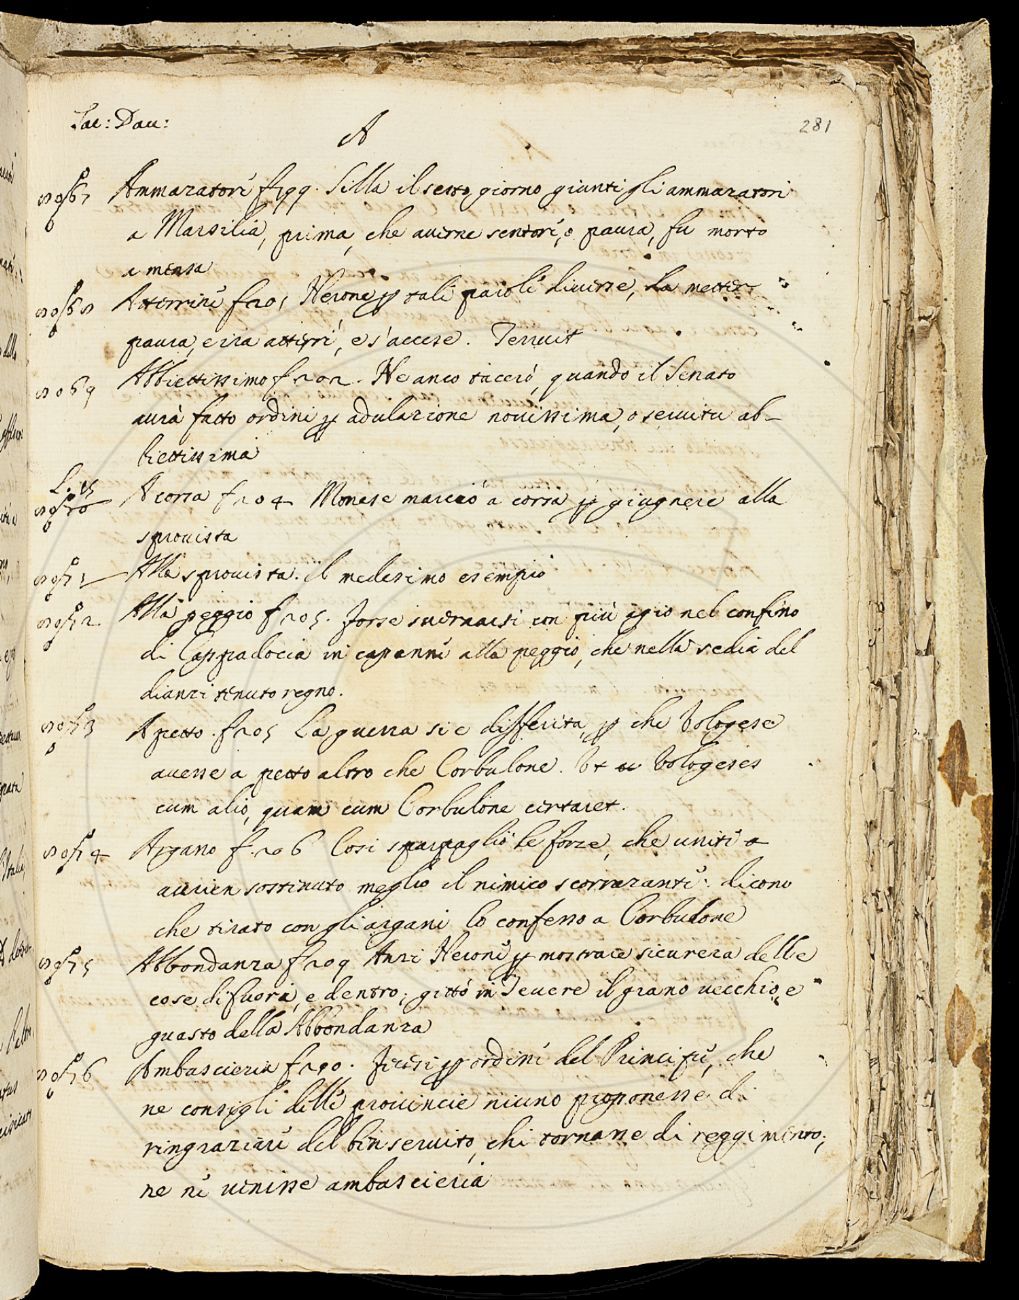 Tac: Dav:
A
281
Ammazatori f 199. Silla il sesto giorno giunti gli ammazatori
a Marsilia, prima, che averne sentori, o paura, fu morto
a mensa
Atterrire f 201 Nerone p tali paiole
paura, e ira atterrì, e s'accese. Terruit
Abbiettissimo f 202. Ne anco tacerò, quando il Senato
avrà fatto ordini p adulazione novissima, o servitu ab-
biettissima
L: 15
A corsa f 204 Monese marciò a corsa p giugnere alla
sprovista
Alla sprovista. Il medesimo esempio
Alla peggio f 205. Forse svernarsi con più agio nel confino
di Cappadocia in capanne alla peggio, che nella sedia del
dianzi tenuto regno.
A petto. f 205 La guerra si e differita, p che Vologese
avesse a petto altro che Corbulone. Ut Vologeses
cum alio, quam cum Corbulone certaret.
Argano f 206 Cosi sparpagliò le forze, che unite a
avrien sostenuto meglio il nimico scorrazante. dicono
che tirato con gli argani, lo confesso a Corbulone
Abbondanza f 209 Anzi Nerone p mostrare sicureza delle
cose di fuora, e dentro; gittò in Tevere il grano vecchio, e
guasto della Abbondanza
Ambascieria f 290. Fecesi p ordine del Principe, che
ne consigli delle provincie niuno proponesse di
ringraziare del ben servito, chi tornasse di reggimento;
ne ne venisse ambascieria